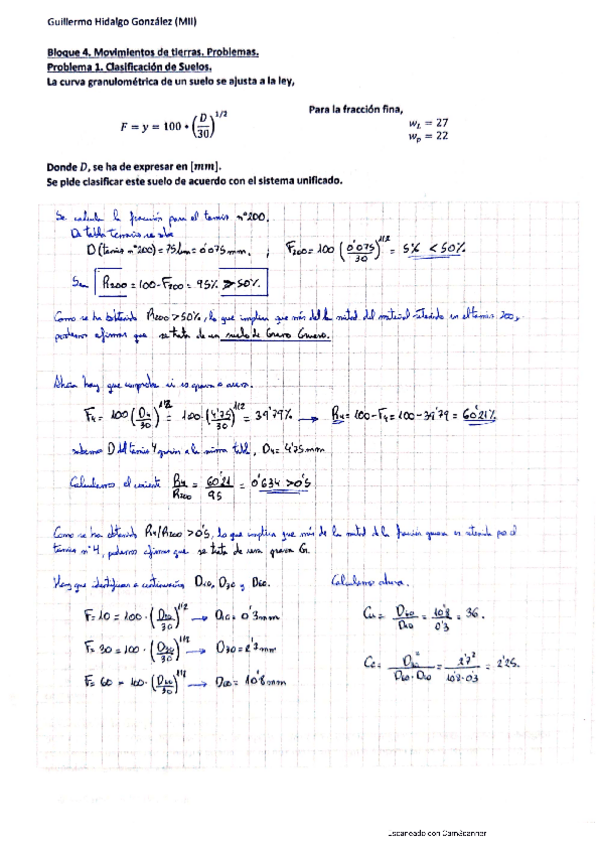 Guillermo Hidalgo González (MII)
Bloque 4. Movimientos de tierras. Problemas.
Problema 1. Clasificación de Suelos.
La curva granulométrica de un suelo se ajusta a la ley,
F = y = 100 * (D/30)^1/2
Para la fracción fina,
w_L = 27
w_P = 22
Donde D, se ha de expresar en [mm].
Se pide clasificar este suelo de acuerdo con el sistema unificado.
Se calcula la fracción para el tamiz nº200.
D (tamiz nº200) = 75 µm = 0'075 mm. ; F200 = 100 (0'075/30)^1/2 = 5% < 50%
R200 = 100 - F200 = 95% > 50%.
Como se ha obtenido R200 > 50%, lo que implica que más de la mitad del material retenido en el tamiz 200,
podemos afirmar que se trata de un suelo de Grano Grueso.
Ahora hay que comprobar si es grava o arena.
F4 = 100 (D4/30)^1/2 = 100 · (4'75/30)^1/2 = 39'79% → R4 = 100 - F4 = 100 - 39'79 = 60'21%
sabemos D del tamiz 4 según la misma tabla, D4 = 4'75 mm
Calculamos el cociente R4/R200 = 60'21/95 = 0'634 > 0'5
Como se ha obtenido R4/R200 > 0'5, lo que implica que más de la mitad de la fracción gruesa es retenida por el
tamiz nº4, podemos afirmar que se trata de una grava G.
Hay que identificar a continuación D10, D30 y D60.
Calculamos ahora.
F = 10 = 100 · (D10/30)^1/2 → D10 = 0'3 mm
Cu = D60/D10 = 10'8/0'3 = 36.
F = 30 = 100 · (D30/30)^1/2 → D30 = 2'7 mm
F = 60 = 100 · (D60/30)^1/2 → D60 = 10'8 mm
Cc = = 2'7²/10'8·0'3 = 2'25.
Escaneado con CamScanner